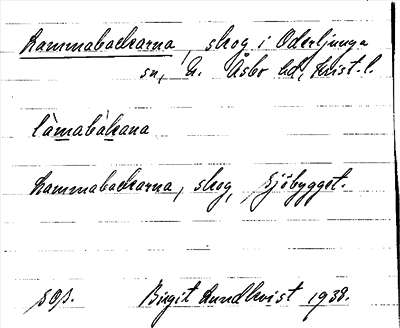 Lammabackarna, skog i Oderljunga
sn, N. Åsbo hd, Krist. l.
làmabàkana
Lammabackarna, skog, Sjöbygget.
sos. Birgit Lundkvist 1938.